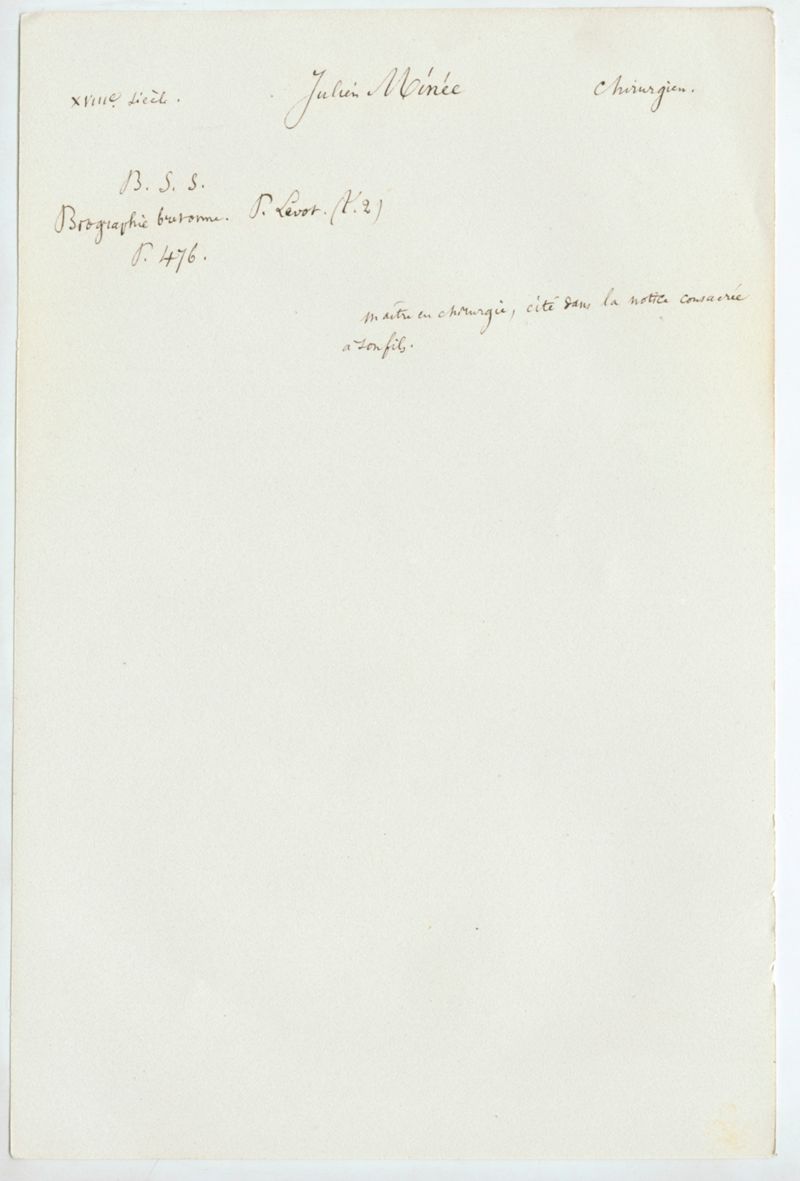 XVIIIe siècle. Julien Minée Chirurgien.
B. S. S.
Biographie bretonne. P. Levot. (T. 2)
P. 476.
maître en chirurgie, cité dans la notice consacrée
à son fils.